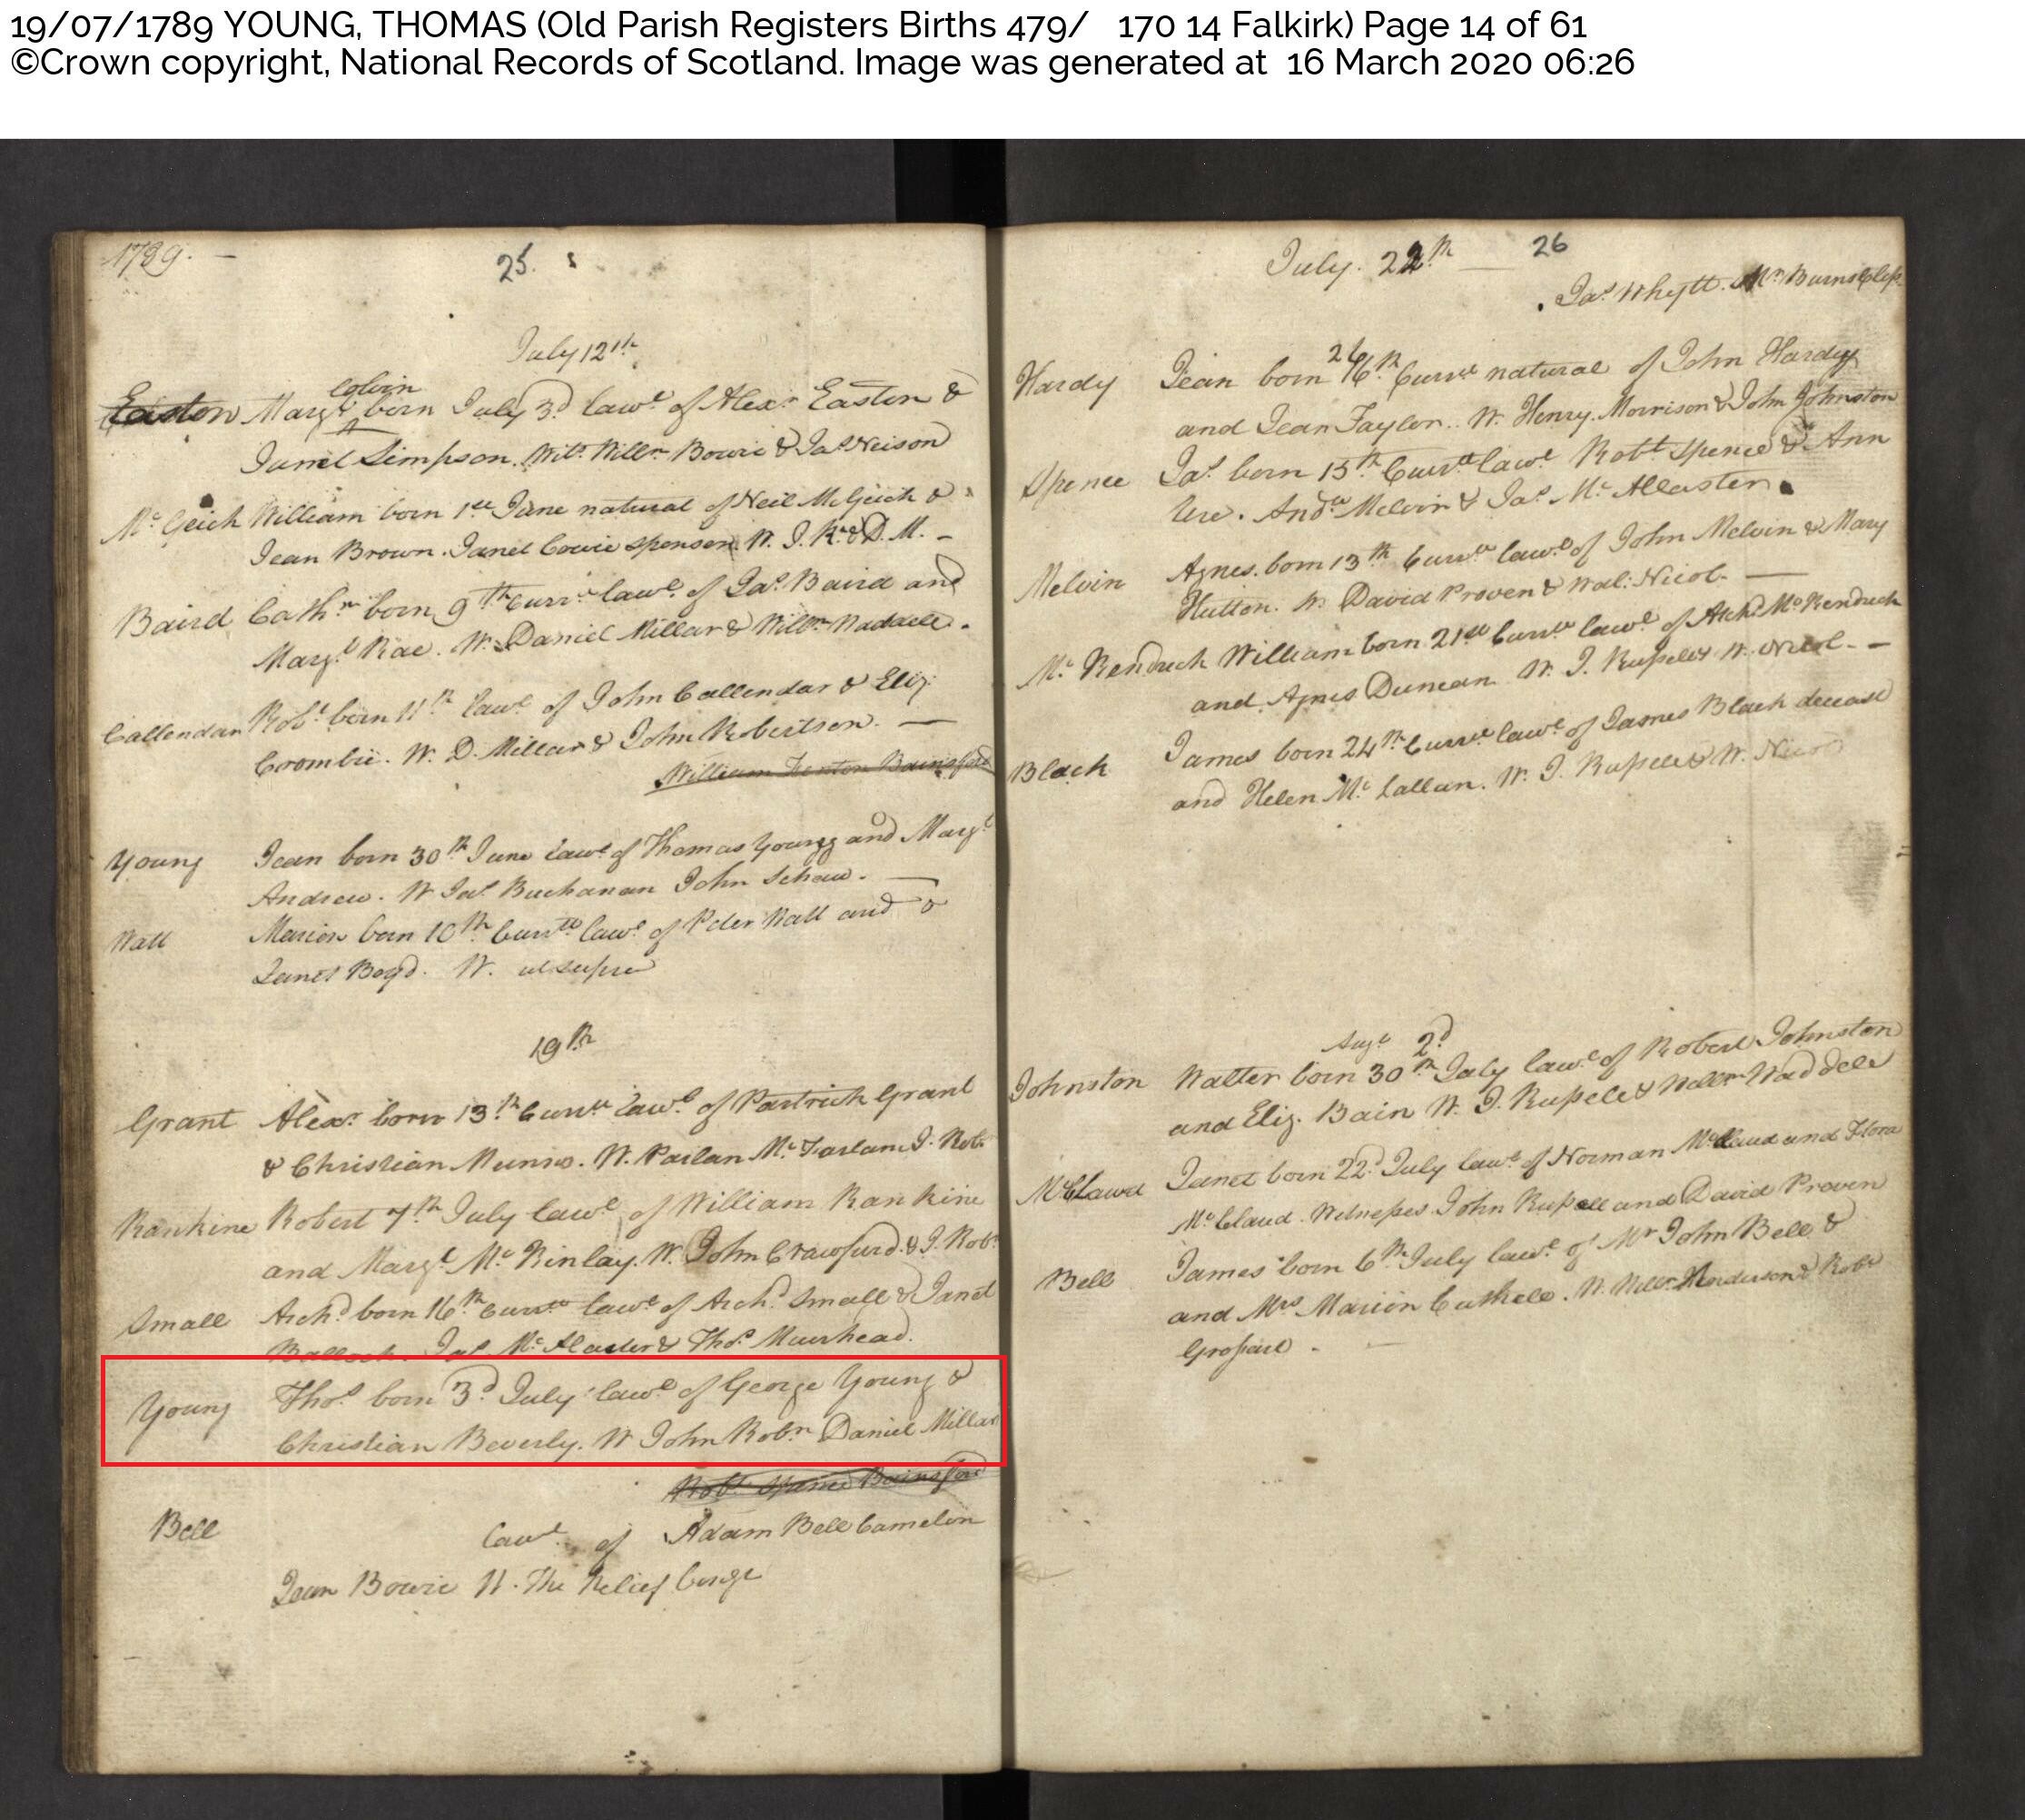 19/07/1789 YOUNG, THOMAS (Old Parish Registers Births 479/ 170 14 Falkirk) Page 14 of 61
©Crown copyright, National Records of Scotland. Image was generated at 16 March 2020 06:26
1789. —
25.
July 12th
Colvin
Easton Margt born July 3d lawl of Alexr Easton &
Janet Simpson. Wits Willm Bowie & Jas Neison
McGeich William born 1st June natural of Neil McGeich &
Jean Brown. Janet Cowie sponsor. W. J. R. & D. M. —
Baird Cathn born 9th Currt lawl of Jas Baird and
Margt Rae. W. Daniel Millar & Willm Waddele.
Callendar Robt born 11th lawl of John Callendar & Eliz.
Crombie. W. D. Millar & John Robertson. —
William Bainsford
Young Jean born 30th June lawl of Thomas Young and Margt
Andrew. W Jas Buchanan John Schaw. —
Watt Marion born 10th Currtt lawl of Peter Watt and &
Janet Boyd. W. ut supra
19th
Grant Alexr born 13th Currtt lawl of Partrick Grant
& Christian Munro. W. Parlan McFarlan J. Robn
Rankine Robert 7th July lawl of William Rankine
and Margt McKinlay. W. John Crawfurd. & J. Robn
Small Archd born 16th Currtt lawl of Archd Small & Janet
Balloch. Jas McAlaster & Thos Muirhead.
Young Thos born 3d July lawl of George Young &
Christian Beverly. W John Robn Daniel Millar
Robt Bainsford
Bell lawl of Adam Bell Camelon
Jean Bowie W. The Relief Congr
July. 22th —
26
Jas Whytt. Mr Burns
Hardy Jean born 26th Currtt natural of John Hardy
and Jean Taylor. W. Henry Morrison & John Johnston
Spence Jas born 15th Currtt lawl Robt Spence & Ann
Ure. Andw Melvin & Jas McAllaster.
Melvin Agnes. born 13th Currtt lawl of John Melvin & Mary
Hutton. W. David Proven & Wal: Nicol. —
McKendrick William born 21st Currtt lawl of Archd McKendrick
and Agnes Duncan W. J. Russell & W. Nicol. —
Black James born 24th Currtt lawl of James Black deceasd
and Helen McCallum. W. J. Russell & W. Nicol
Augt 2d
Johnston Walter born 30th July lawl of Robert Johnston
and Eliz. Bain W. J. Russell & Willm Waddele
McClawd Janet born 22d July lawl of Norman McClaud and Flora
McClaud. Witnesses John Russell and David Proven
Bell James born 6th July lawl of Mr John Bell &
and Mrs Marion Cuthele. W. Willm Henderson & Robt